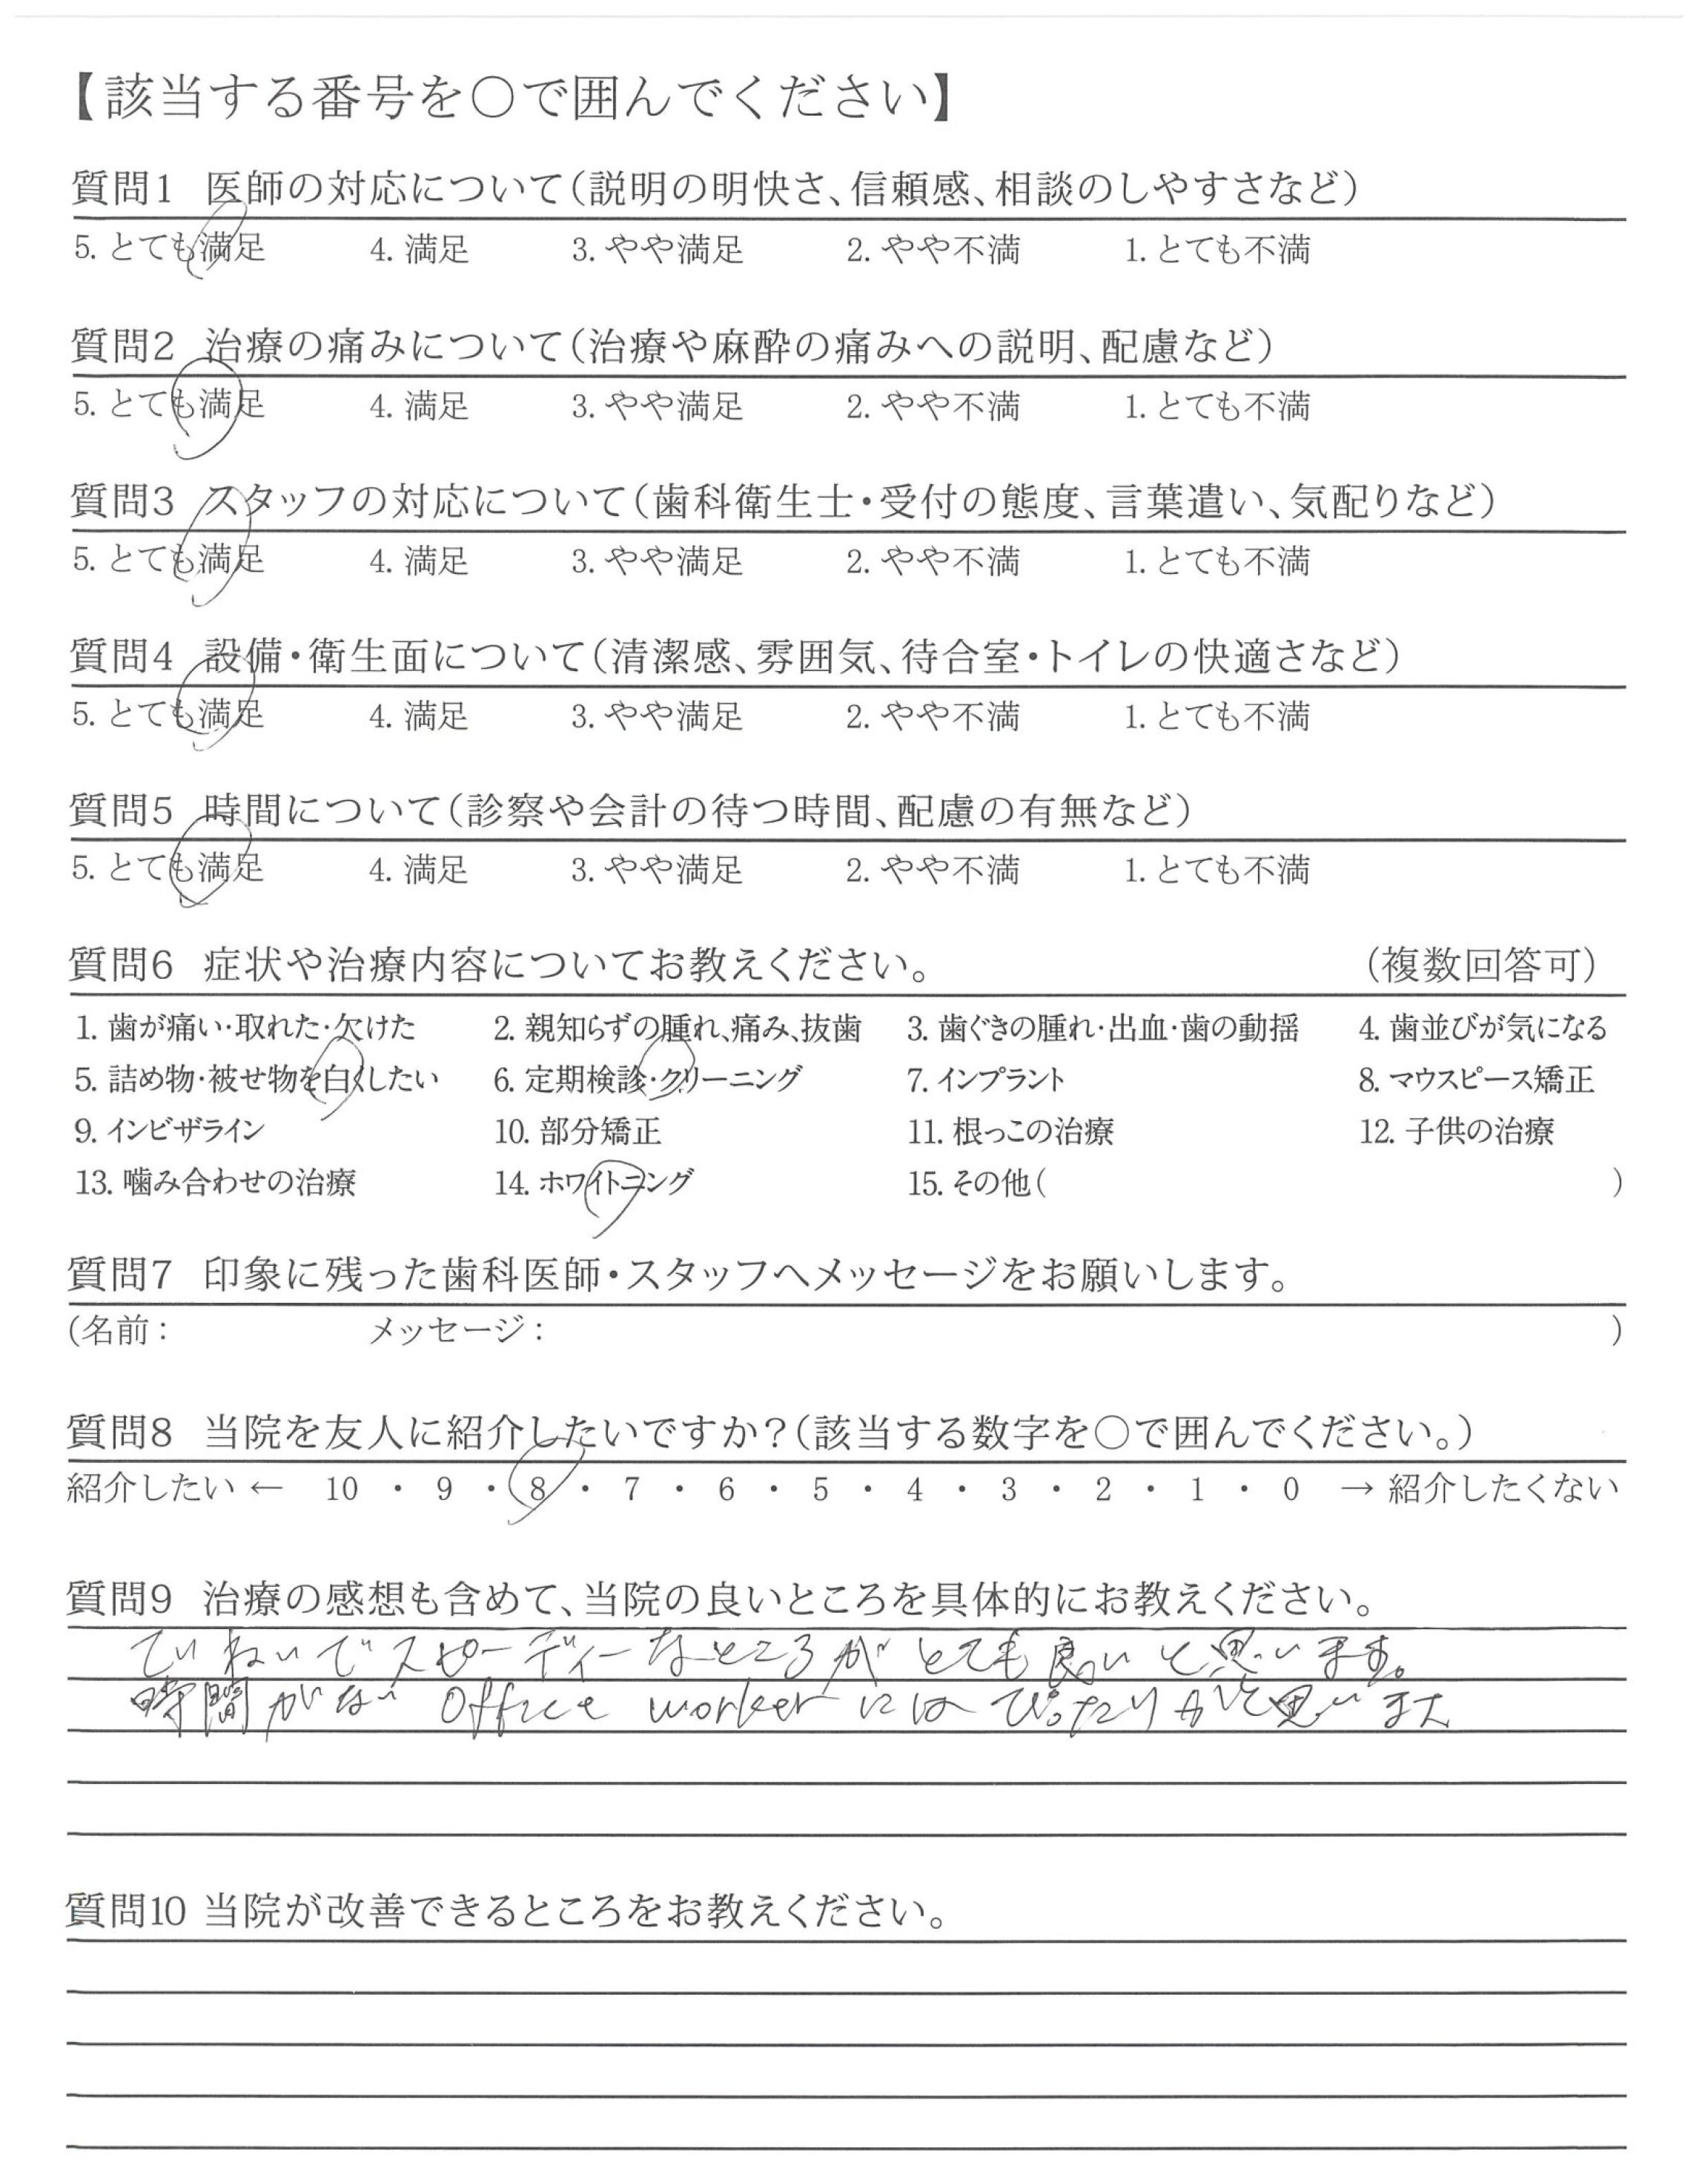 【該当する番号を○で囲んでください】
質問1 医師の対応について(説明の明快さ、信頼感、相談のしやすさなど)
5. とても満足 4. 満足 3. やや満足 2. やや不満 1. とても不満
質問2 治療の痛みについて(治療や麻酔の痛みへの説明、配慮など)
5. とても満足 4. 満足 3. やや満足 2. やや不満 1. とても不満
質問3 スタッフの対応について(歯科衛生士・受付の態度、言葉遣い、気配りなど)
5. とても満足 4. 満足 3. やや満足 2. やや不満 1. とても不満
質問4 設備・衛生面について(清潔感、雰囲気、待合室・トイレの快適さなど)
5. とても満足 4. 満足 3. やや満足 2. やや不満 1. とても不満
質問5 時間について(診察や会計の待つ時間、配慮の有無など)
5. とても満足 4. 満足 3. やや満足 2. やや不満 1. とても不満
質問6 症状や治療内容についてお教えください。 (複数回答可)
1. 歯が痛い・取れた・欠けた 2. 親知らずの腫れ、痛み、抜歯 3. 歯ぐきの腫れ・出血・歯の動揺 4. 歯並びが気になる
5. 詰め物・被せ物を白くしたい 6. 定期検診・クリーニング 7. インプラント 8. マウスピース矯正
9. インビザライン 10. 部分矯正 11. 根っこの治療 12. 子供の治療
13. 噛み合わせの治療 14. ホワイトニング 15. その他( )
質問7 印象に残った歯科医師・スタッフへメッセージをお願いします。
(名前: メッセージ: )
質問8 当院を友人に紹介したいですか?(該当する数字を○で囲んでください。)
紹介したい ← 10 ・ 9 ・ 8 ・ 7 ・ 6 ・ 5 ・ 4 ・ 3 ・ 2 ・ 1 ・ 0 → 紹介したくない
質問9 治療の感想も含めて、当院の良いところを具体的にお教えください。
ていねいでスピーディーなところがとても良いと思います。
時間がない Office worker にはぴったりかと思います
質問10 当院が改善できるところをお教えください。